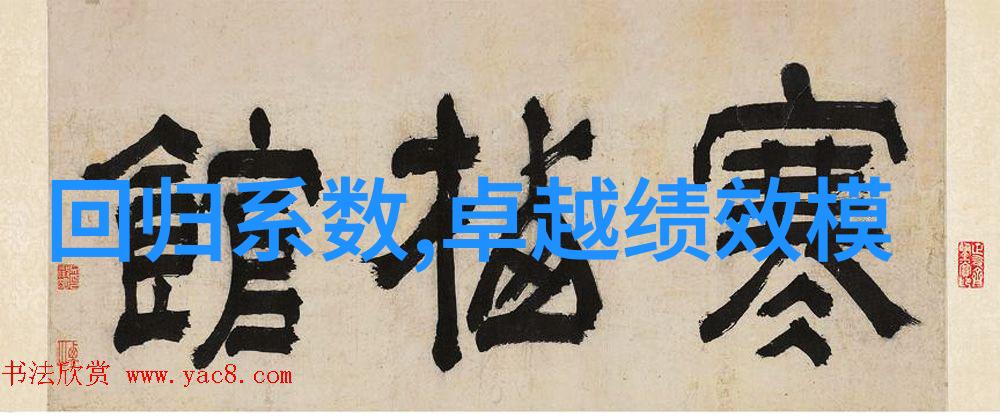 寒館
回归系数,卓越绩效模
书法欣赏 www.yac8.com